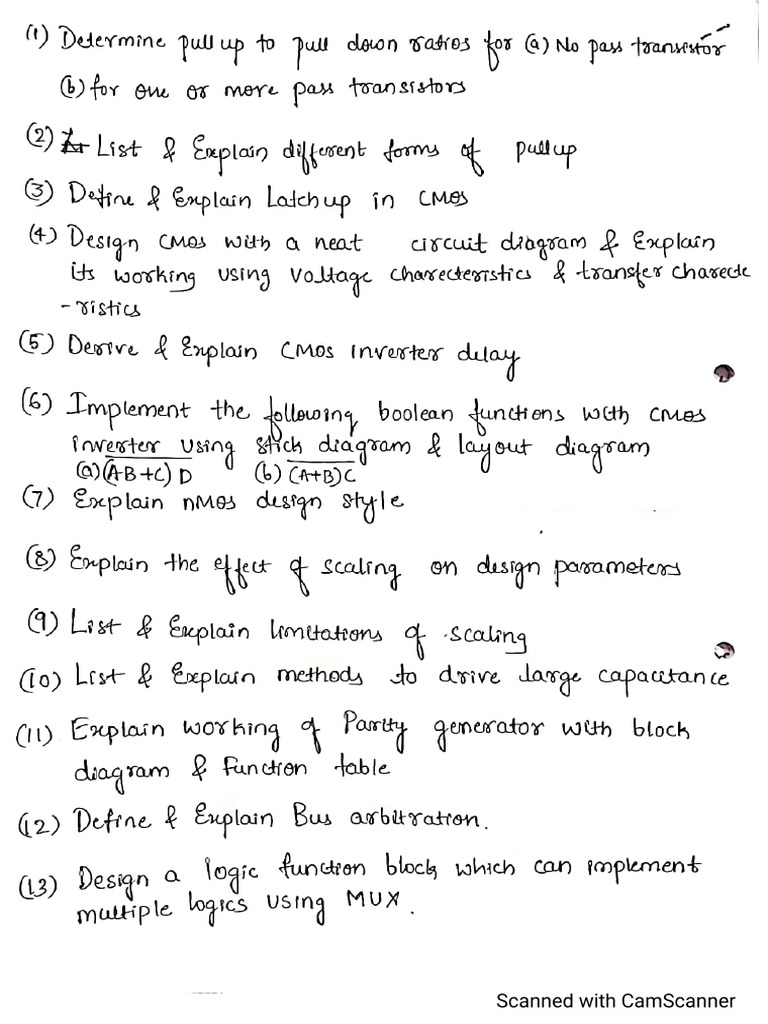 (1) Determine pull up to pull down ratios for (a) No pass transistor
(b) for one or more pass transistors
(2) List & Explain different forms of pullup
(3) Define & Explain Latchup in CMOS
(4) Design CMOS with a neat circuit diagram & Explain
its working using voltage charecteristics & transfer charecte
-ristics
(5) Derive & Explain CMOS inverter delay
(6) Implement the following boolean functions with CMOS
inverter using stick diagram & layout diagram
(a) (A·B+C) D (b) (A+B)C
(7) Explain nMOS design style
(8) Explain the effect of scaling on design parameters
(9) List & Explain limitations of scaling
(10) List & Explain methods to drive large capacitance
(11) Explain working of Parity generator with block
diagram & function table
(12) Define & Explain Bus arbitration.
(13) Design a logic function block which can implement
multiple logics using MUX.
Scanned with CamScanner